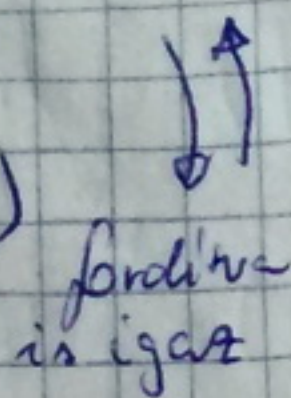 )
fordítva
is igaz